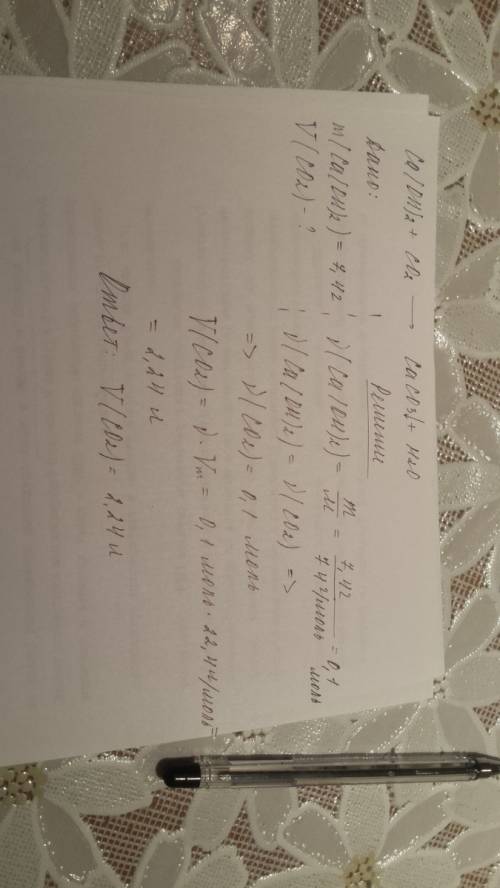 Ca(OH)2 + CO2 → CaCO3↓ + H2O
Дано:
Решение
m(Ca(OH)2) = 7,4г
ν(Ca(OH)2) = m/M = 7,4г/74г/моль = 0,1 моль
V(CO2) - ?
ν(Ca(OH)2) = ν(CO2) =>
=> ν(CO2) = 0,1 моль
V(CO2) = ν · Vm = 0,1 моль · 22,4л/моль =
= 2,24 л
Ответ: V(CO2) = 2,24 л